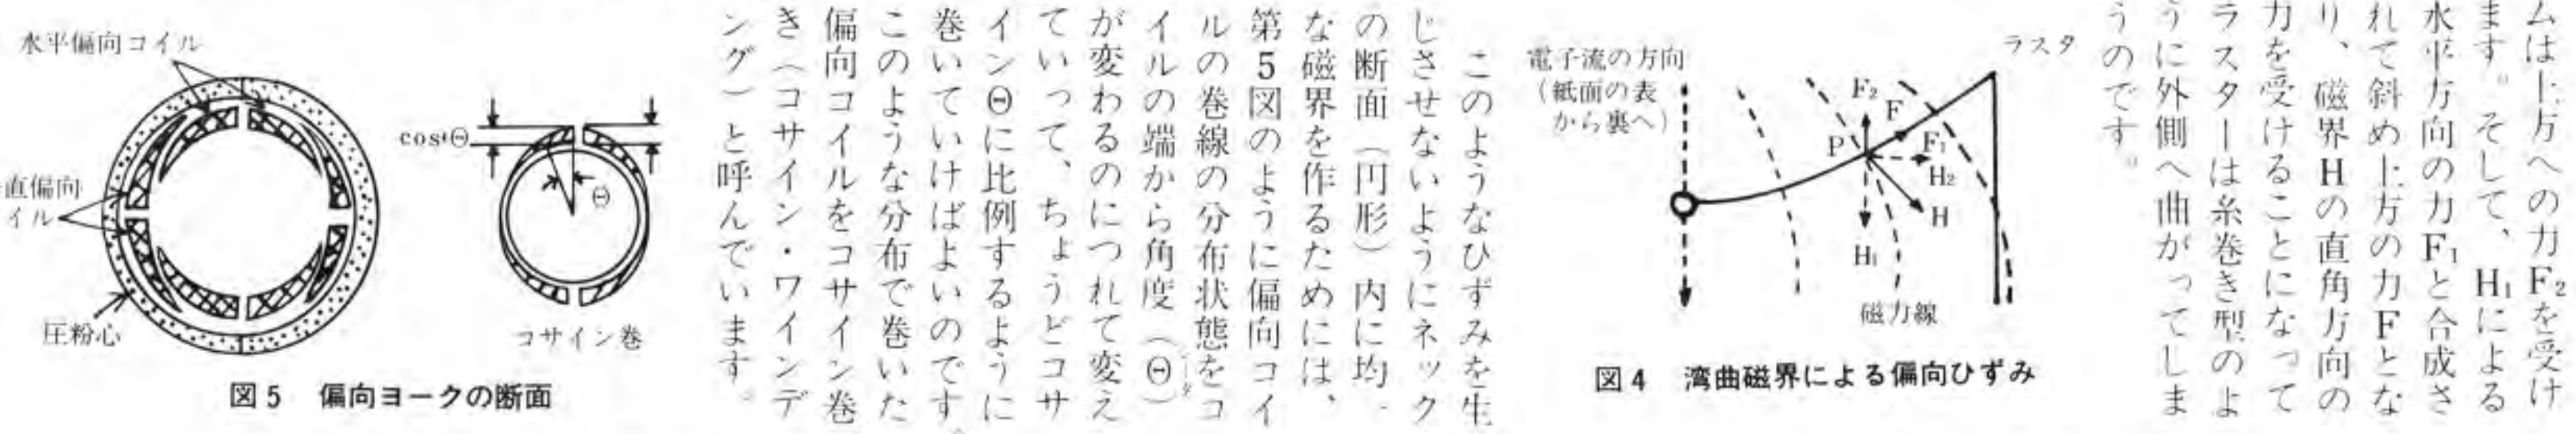 ムは上方への力F₂を受け
ます。そして、H₁による
水平方向の力F₁と合成さ
れて斜め上方の力Fとな
り、磁界Hの直角方向の
力を受けることになって
ラスターは糸巻き型のよ
うに外側へ曲がってしま
うのです。
ラスタ
電子流の方向
(紙面の表
から裏へ)
F₂
F
F₁
P
H₂
H
H₁
磁力線
図4 湾曲磁界による偏向ひずみ
このようなひずみを生
じさせないようにネック
の断面(円形)内に均一
な磁界を作るためには、
第5図のように偏向コイ
ルの巻線の分布状態をコ
イルの端から角度(Θ)
シータ
が変わるのにつれて変え
ていって、ちょうどコサ
インΘに比例するように
巻いていけばよいのです。
このような分布で巻いた
偏向コイルをコサイン巻
き(コサイン・ワインデ
ング)と呼んでいます。
水平偏向コイル
直偏向
イル
圧粉心
cosΘ
Θ
コサイン巻
図5 偏向ヨークの断面